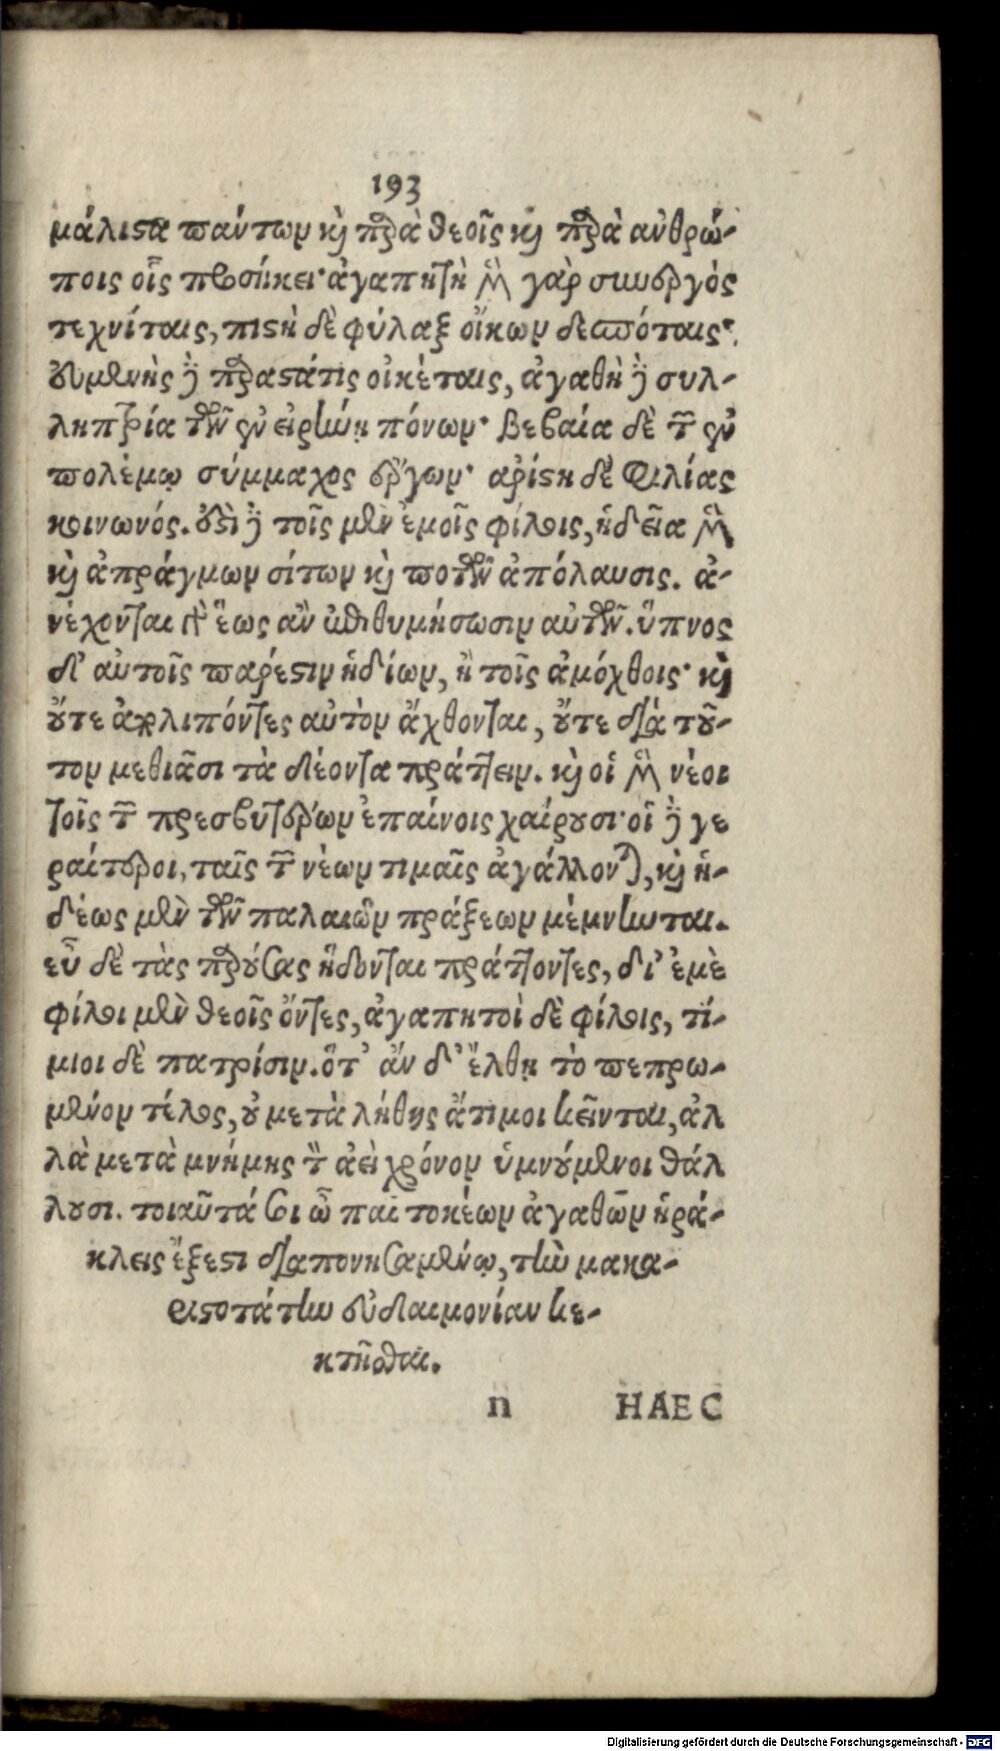 193
μάλιϛα πάντων καὶ παρὰ θεοῖς καὶ παρὰ ἀνθρώ-
ποις οἷς προσήκει· ἀγαπητὴ μὲν γὰρ συνεργὸς
τεχνίταις, πιϛὴ δὲ φύλαξ οἴκων δεσπόταις·
εὐμενὴς δὲ παραϛάτις οἰκέταις, ἀγαθὴ δὲ συλ-
λήπτρια τῶν ἐν εἰρήνῃ πόνων· βεβαία δὲ τῶν ἐν
πολέμῳ σύμμαχος ἔργων· ἀρίϛη δὲ φιλίας
κοινωνός. ἔϛι δὲ τοῖς μὲν ἐμοῖς φίλοις, ἡδεῖα μὲν
καὶ ἀπράγμων σίτων καὶ ποτῶν ἀπόλαυσις. ἀ-
νέχονται γὰρ ἕως ἂν ἐπιθυμήσωσιν αὐτῶν. ὕπνος
δ' αὐτοῖς πάρεϛιν ἡδίων, ἢ τοῖς ἀμόχθοις· καὶ
οὔτε ἀπολιπόντες αὐτὸν ἄχθονται, οὔτε διὰ τοῦ-
τον μεθιᾶσι τὰ δέοντα πράττειν. καὶ οἱ μὲν νέοι
τοῖς τῶν πρεσβυτέρων ἐπαίνοις χαίρουσι· οἱ δὲ γε
ραίτεροι, ταῖς τῶν νέων τιμαῖς ἀγάλλονται, καὶ ἡ-
δέως μὲν τῶν παλαιῶν πράξεων μέμνηνται.
εὖ δὲ τὰς παρούσας ἥδονται πράττοντες, δι' ἐμὲ
φίλοι μὲν θεοῖς ὄντες, ἀγαπητοὶ δὲ φίλοις, τί-
μιοι δὲ πατρίσιν. ὅτ' ἂν δ' ἔλθῃ τὸ πεπρω-
μένον τέλος, οὐ μετὰ λήθης ἄτιμοι κεῖνται, ἀλ
λὰ μετὰ μνήμης τὸν ἀεὶ χρόνον ὑμνούμενοι θάλ
λουσι. τοιαῦτά σοι ὦ παῖ τοκέων ἀγαθῶν ἡρά-
κλεις ἔξεϛι διαπονησαμένῳ, τὴν μακα-
ριϛοτάτην εὐδαιμονίαν κε-
κτῆσθαι.
n HAEC
Digitalisierung gefördert durch die Deutsche Forschungsgemeinschaft - DFG